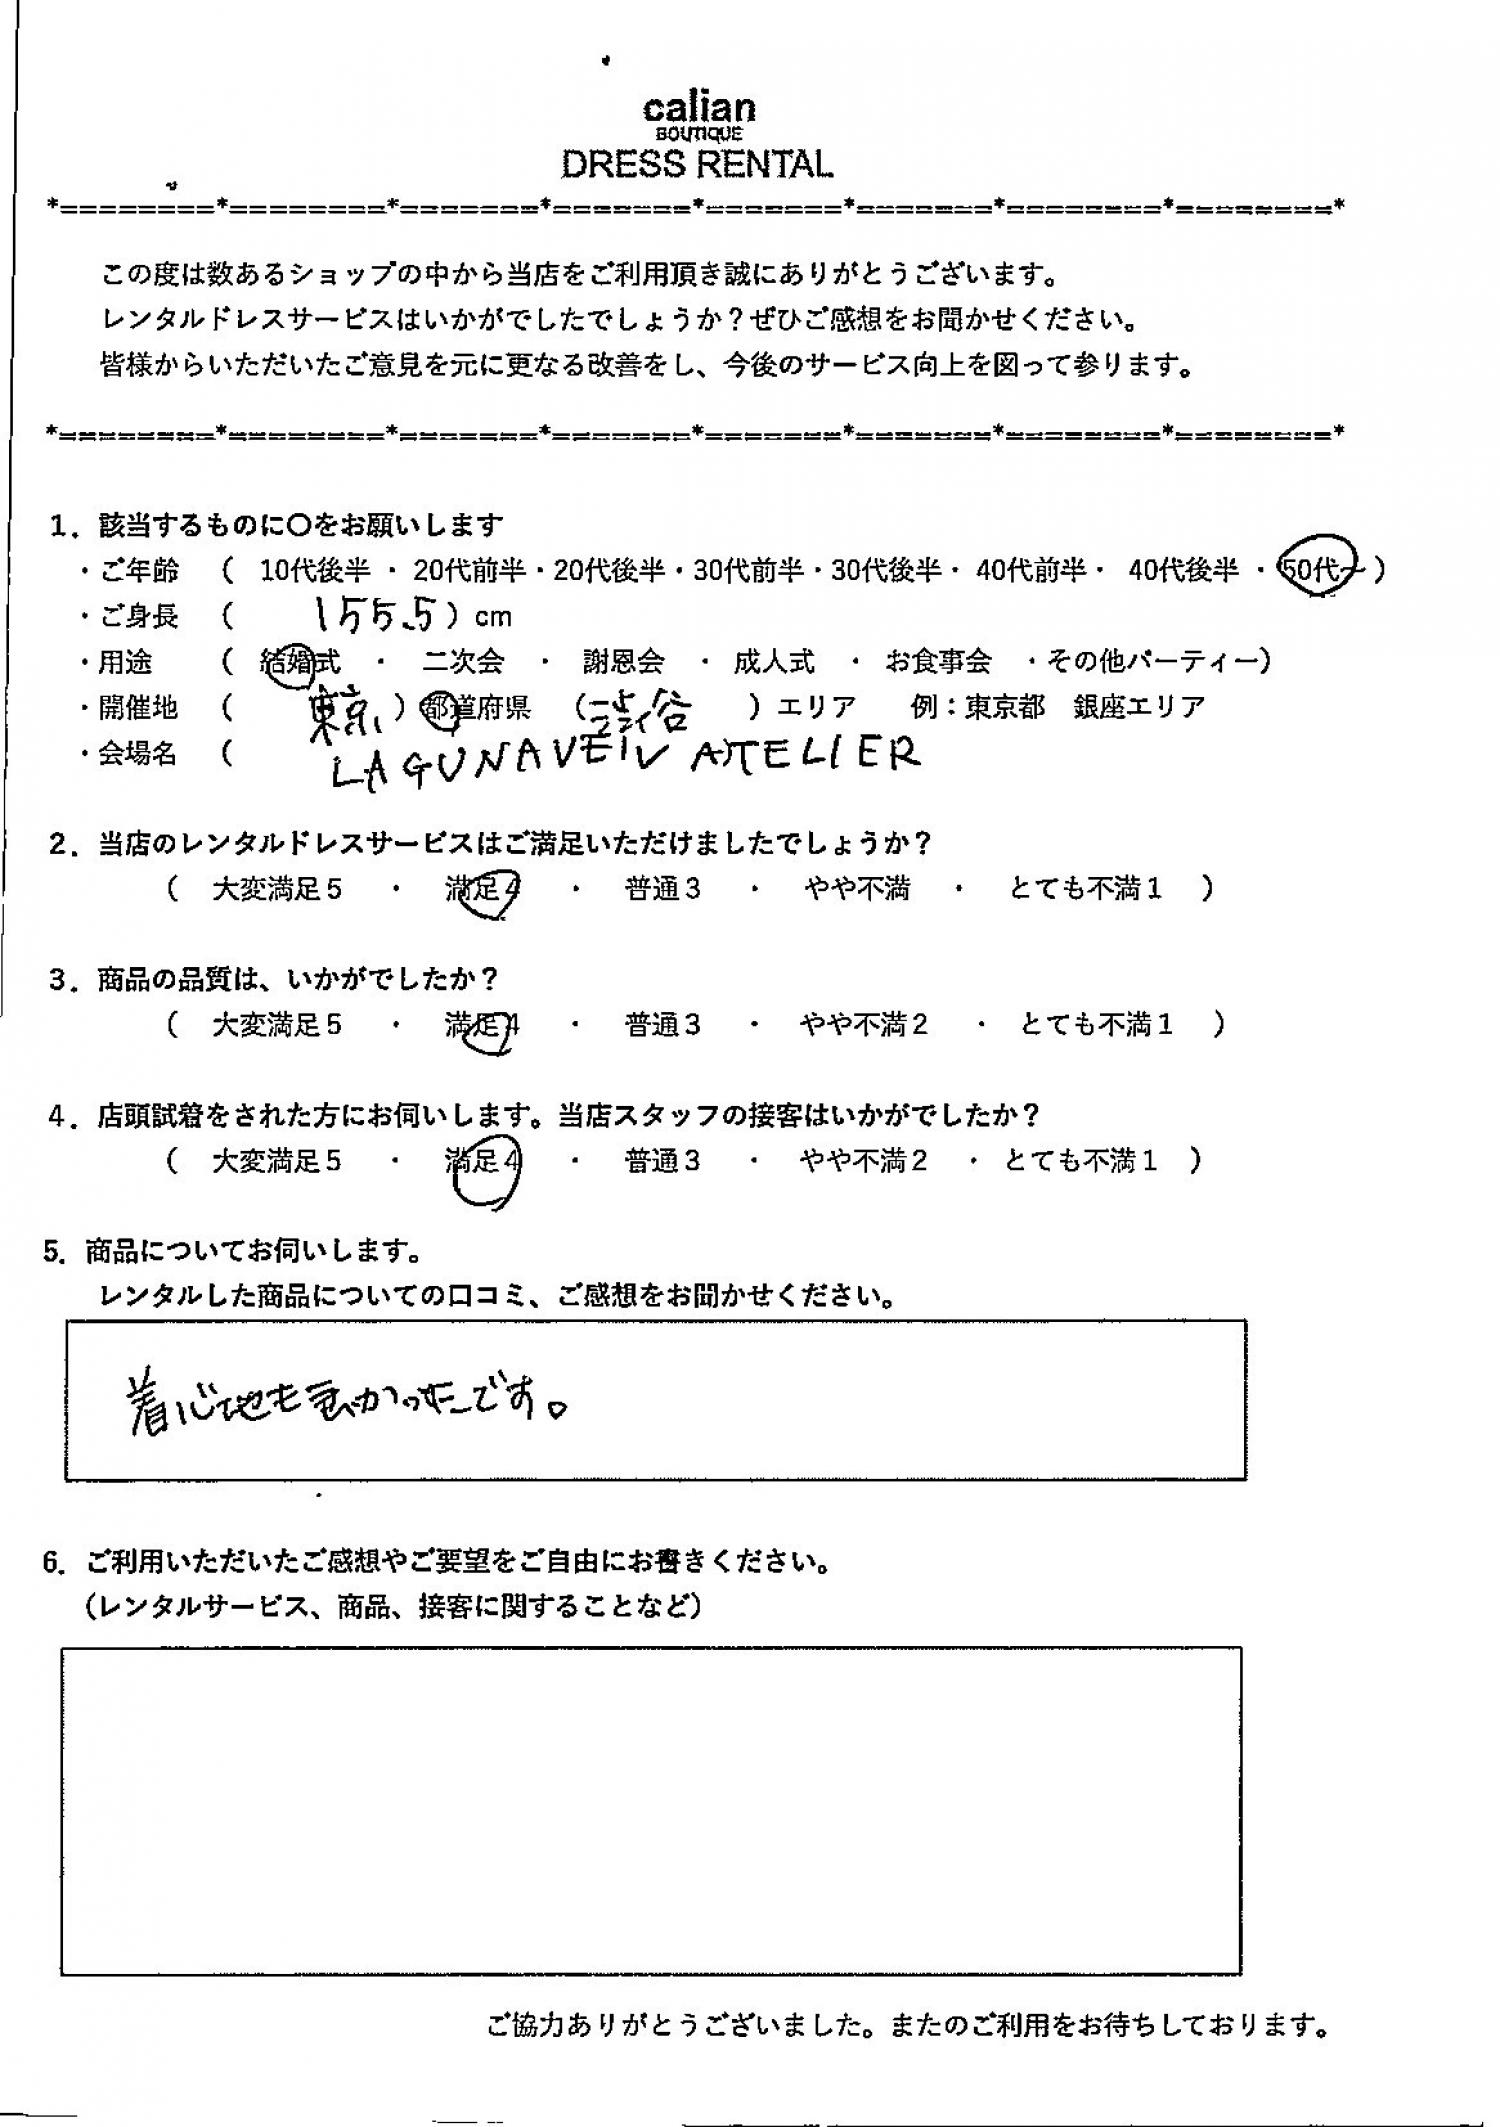 calian
BOUTIQUE
DRESS RENTAL
*========*========*=======*=======*=======*=======*========*========*
この度は数あるショップの中から当店をご利用頂き誠にありがとうございます。
レンタルドレスサービスはいかがでしたでしょうか？ぜひご感想をお聞かせください。
皆様からいただいたご意見を元に更なる改善をし、今後のサービス向上を図って参ります。
*========*========*=======*=======*=======*=======*========*========*
1．該当するものに〇をお願いします
・ご年齢 （ 10代後半 ・ 20代前半・20代後半・30代前半・30代後半・ 40代前半・ 40代後半 ・ 50代～ ）
・ご身長 （ 155.5 ）cm
・用途 （ 結婚式 ・ 二次会 ・ 謝恩会 ・ 成人式 ・ お食事会 ・その他パーティー）
・開催地 （ 東京 ）都道府県 （ 渋谷 ）エリア 例：東京都 銀座エリア
・会場名 （ LAGUNAVEIL ATELIER
2．当店のレンタルドレスサービスはご満足いただけましたでしょうか？
（ 大変満足５ ・ 満足４ ・ 普通３ ・ やや不満 ・ とても不満１ ）
3．商品の品質は、いかがでしたか？
（ 大変満足５ ・ 満足４ ・ 普通３ ・ やや不満２ ・ とても不満１ ）
4．店頭試着をされた方にお伺いします。当店スタッフの接客はいかがでしたか？
（ 大変満足５ ・ 満足４ ・ 普通３ ・ やや不満２ ・ とても不満１ ）
5．商品についてお伺いします。
レンタルした商品についての口コミ、ご感想をお聞かせください。
着心地も良かったです。
6．ご利用いただいたご感想やご要望をご自由にお書きください。
（レンタルサービス、商品、接客に関することなど）
ご協力ありがとうございました。またのご利用をお待ちしております。